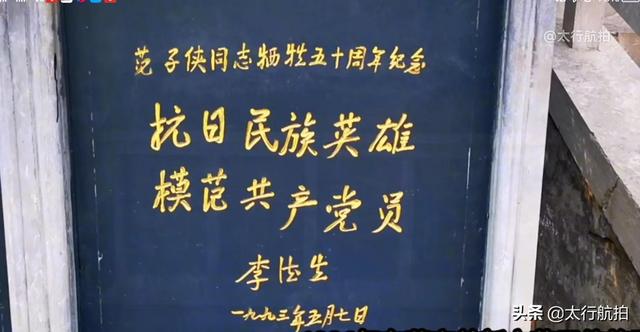 @太行航拍
范子侠同志牺牲五十周年纪念
抗日民族英雄
模范共产党员
李德生
一九九三年五月七日
头条 @太行航拍